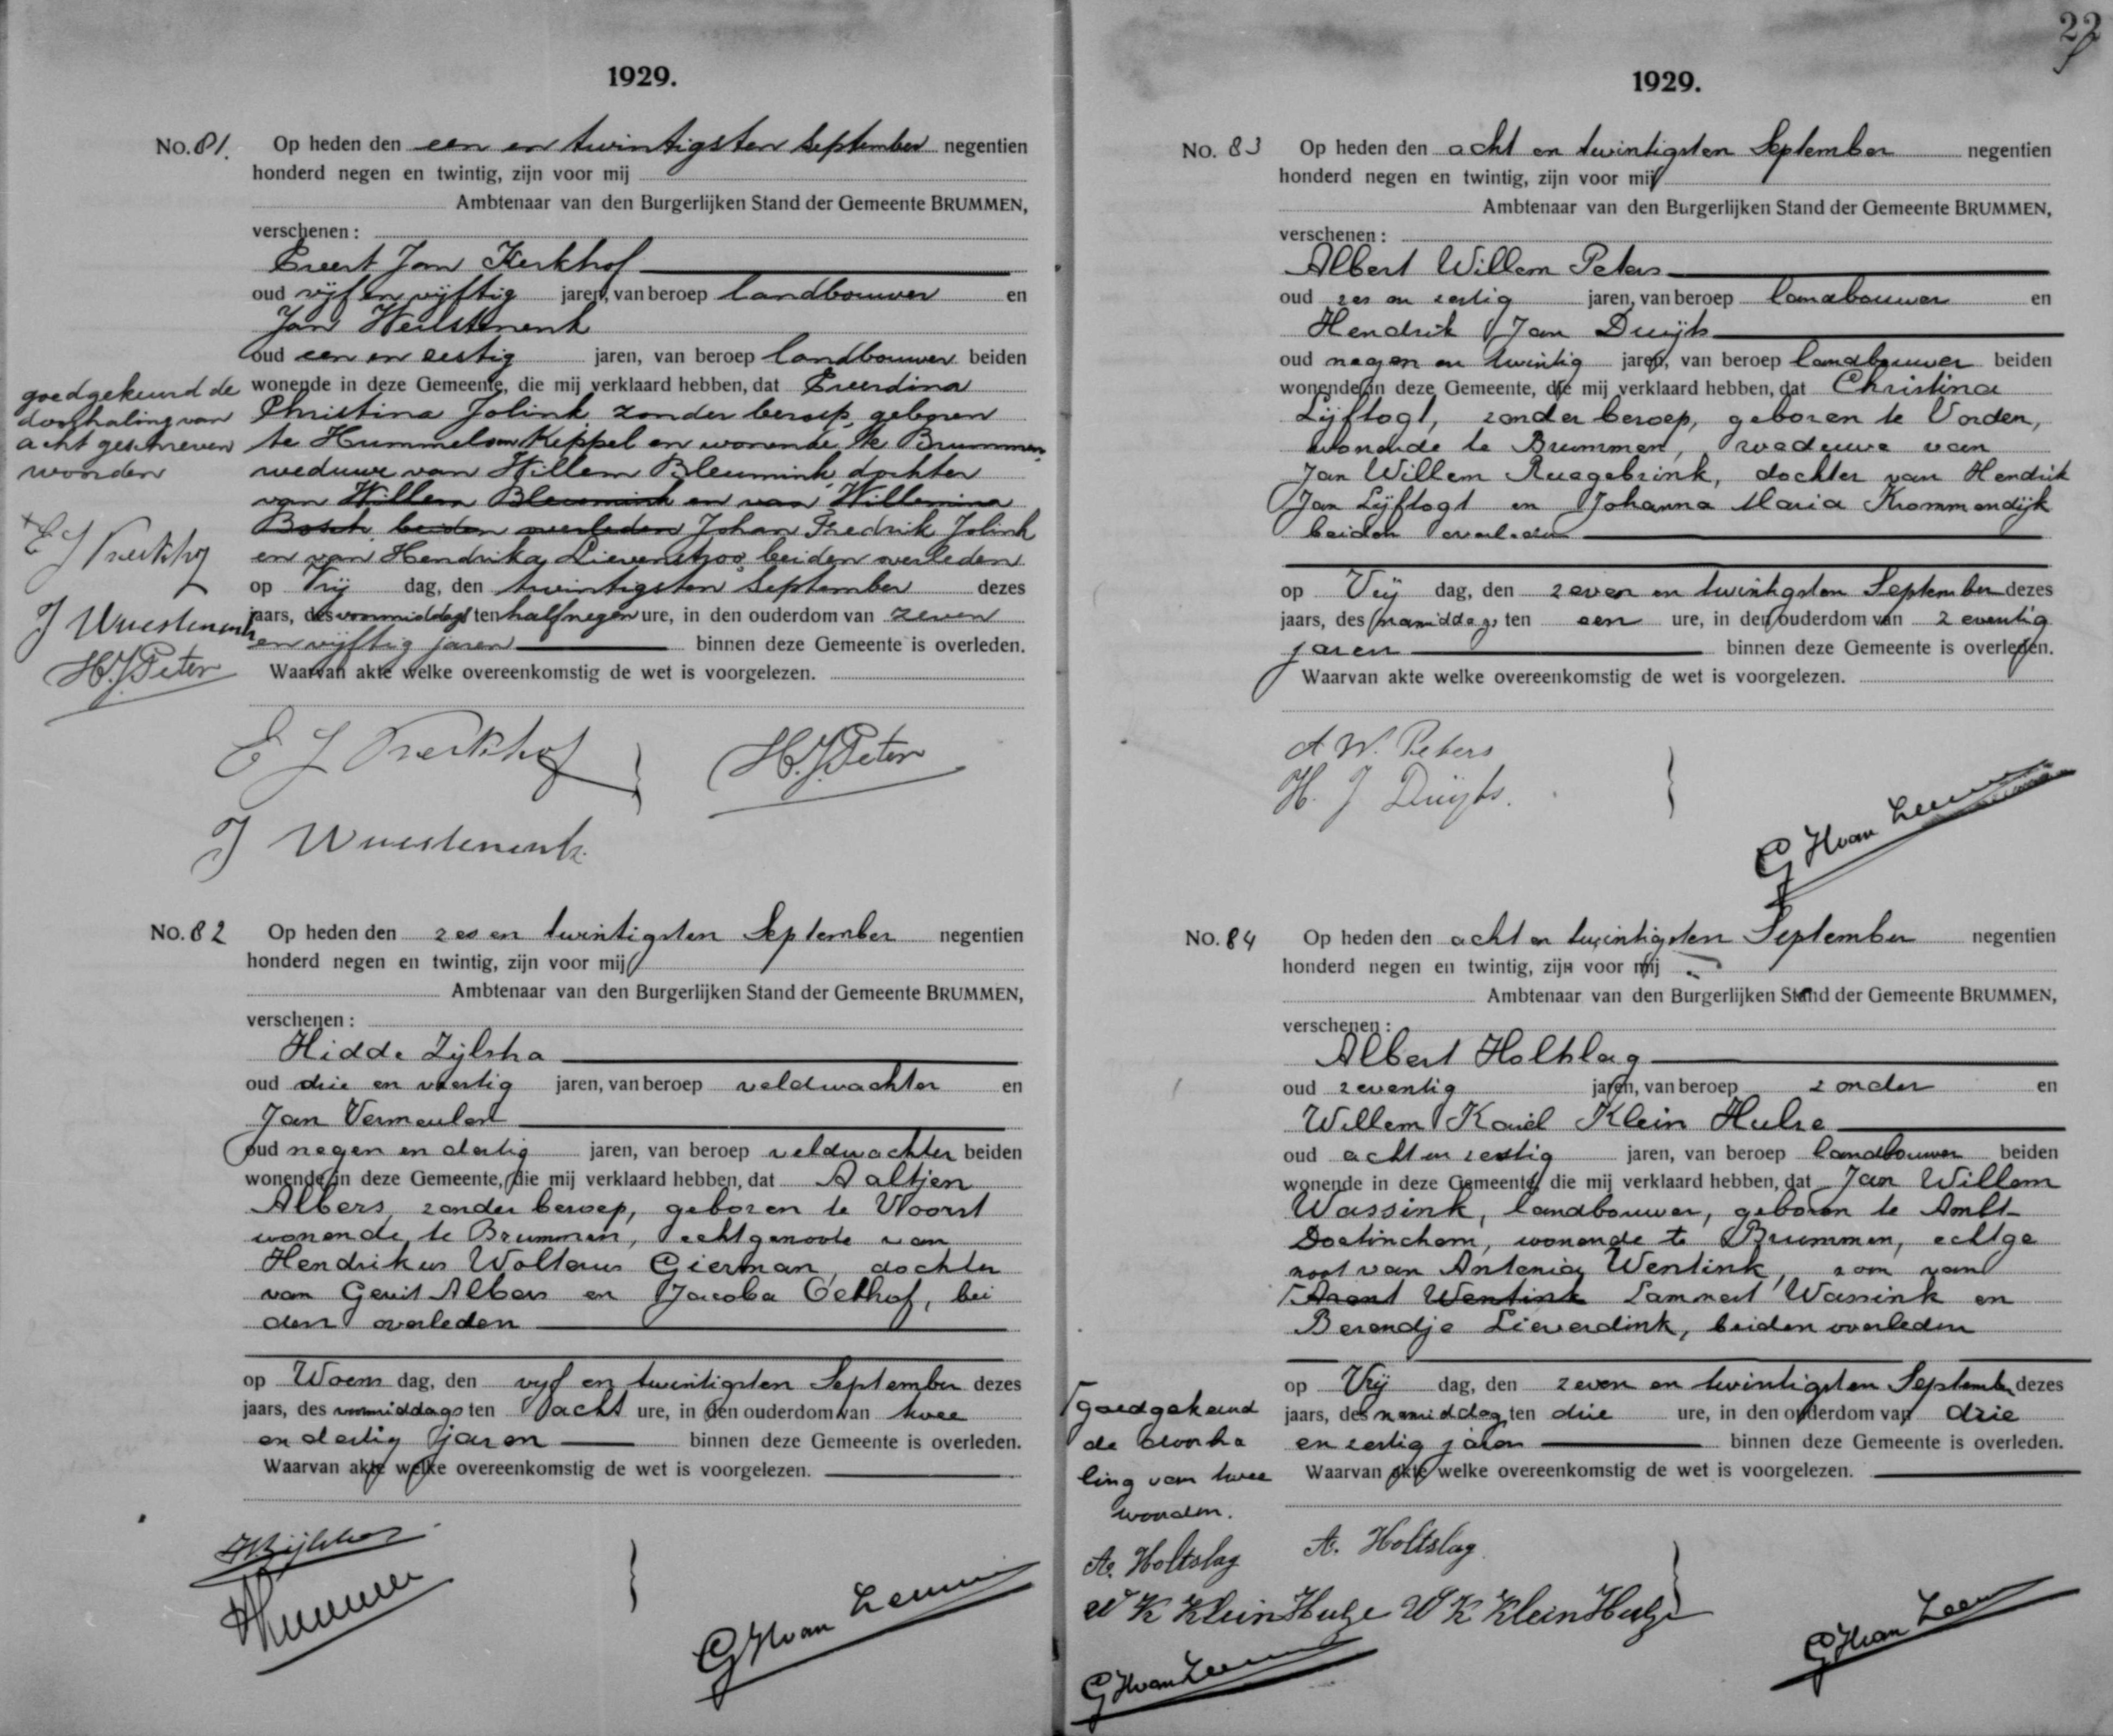 1929.
No. 81. Op heden den een en twintigsten September negentien
honderd negen en twintig, zijn voor mij
Ambtenaar van den Burgerlijken Stand der Gemeente BRUMMEN,
verschenen :
Evert Jan Kerkhof
oud vijf en vijftig jaren, van beroep landbouwer en
Jan
oud een en zestig jaren, van beroep landbouwer beiden
wonende in deze Gemeente, die mij verklaard hebben, dat Everdina
Christina Jolink zonder beroep, geboren
te Hummelo en Keppel en wonende te Brummen
weduwe van Willem Bleumink, dochter
van Willem Bleumink en van Willemina
Bosch beiden overleden Johan Fredrik Jolink
en van Hendrika beiden overleden
op Vrij dag, den twintigsten September dezes
jaars, des voormiddags ten half negen ure, in den ouderdom van zeven
en vijftig jaren binnen deze Gemeente is overleden.
Waarvan akte welke overeenkomstig de wet is voorgelezen.
goedgekeurd de
doorhaling van
acht geschreven
woorden
E J Kerkhof
J Wuestenenk
H.J. Peter
E J Kerkhof
H.J. Peter
J Wuestenenk
No. 82 Op heden den zes en twintigsten September negentien
honderd negen en twintig, zijn voor mij
Ambtenaar van den Burgerlijken Stand der Gemeente BRUMMEN,
verschenen :
Hidde Zijlstra
oud drie en veertig jaren, van beroep veldwachter en
Jan Vermeulen
oud negen en dertig jaren, van beroep veldwachter beiden
wonende in deze Gemeente, die mij verklaard hebben, dat Aaltjen
Albers, zonder beroep, geboren te Voorst
wonende te Brummen, echtgenoote van
Hendrikus Wolterus Gierman, dochter
van Gerrit Albers en Jacoba Oelhof, bei
den overleden
op Woens dag, den vijf en twintigsten September dezes
jaars, des voormiddags ten acht ure, in den ouderdom van twee
en dertig jaren binnen deze Gemeente is overleden.
Waarvan akte welke overeenkomstig de wet is voorgelezen.
G H van
22
1929.
No. 83 Op heden den acht en twintigsten September negentien
honderd negen en twintig, zijn voor mij
Ambtenaar van den Burgerlijken Stand der Gemeente BRUMMEN,
verschenen :
Albert Willem Peters
oud zes en zestig jaren, van beroep landbouwer en
Hendrik Jan Duijts
oud negen en twintig jaren, van beroep landbouwer beiden
wonende in deze Gemeente, die mij verklaard hebben, dat Christina
Lijftogt, zonder beroep, geboren te Vorden,
wonende te Brummen, weduwe van
Jan Willem Ruegebrink, dochter van Hendrik
Jan Lijftogt en Johanna Maria Krommendijk
beiden overleden
op Vrij dag, den zeven en twintigsten September dezes
jaars, des namiddags ten een ure, in den ouderdom van zeventig
jaren binnen deze Gemeente is overleden.
Waarvan akte welke overeenkomstig de wet is voorgelezen.
A W. Peters
H. J Duijts.
G H van
No. 84 Op heden den acht en twintigsten September negentien
honderd negen en twintig, zijn voor mij
Ambtenaar van den Burgerlijken Stand der Gemeente BRUMMEN,
verschenen :
Albert Holtslag
oud zeventig jaren, van beroep zonder en
Willem Karel Klein Hulze
oud acht en zestig jaren, van beroep landbouwer beiden
wonende in deze Gemeente, die mij verklaard hebben, dat Jan Willem
Wassink, landbouwer, geboren te Ambt-
Doetinchem, wonende te Brummen, echtge
noot van Antonia Wentink, zoon van
Arent Wentink Lammert Wassink en
Berendje Lieverdink, beiden overleden
op Vrij dag, den zeven en twintigsten September dezes
jaars, des namiddag ten drie ure, in den ouderdom van drie
en zestig jaren binnen deze Gemeente is overleden.
Waarvan akte welke overeenkomstig de wet is voorgelezen.
goedgekeurd
de doorha
ling van twee
woorden.
A. Holtslag
A. Holtslag
W K Klein Hulze W K Klein Hulze
G H van
G H van